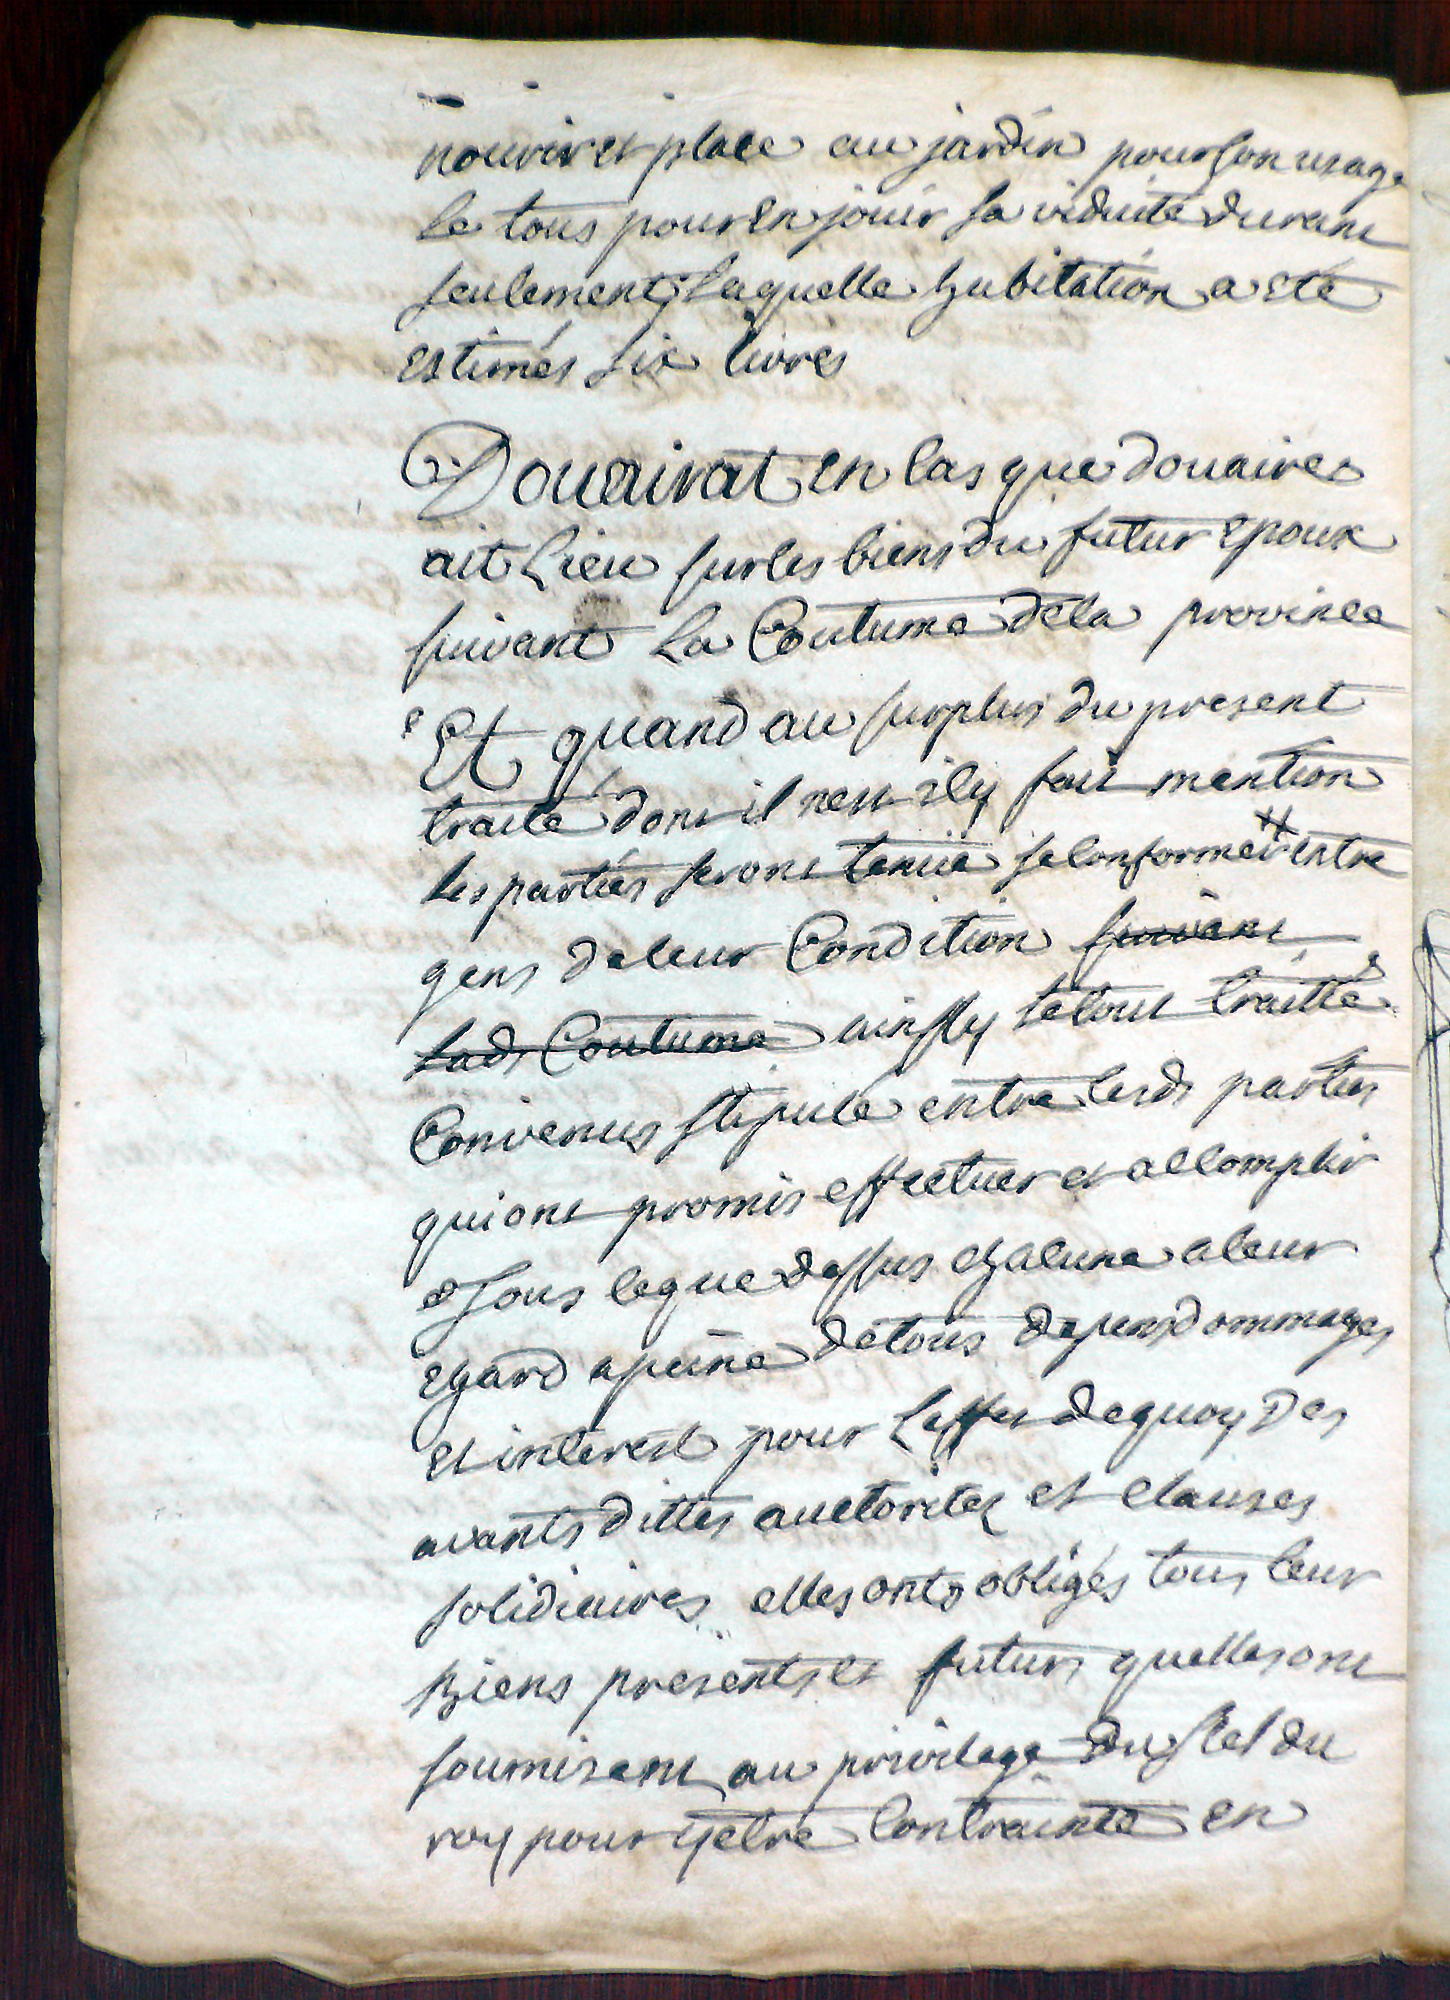 nourir et place au jardin pour son usage
le tous pour en jouir sa viduité durant
seulement, laquelle habitation a eté
estimés six livres
Douairat en cas que douaires
ait lieu sur les biens du futur epoux
suivant la Coutume de la province
Et quand au surplus du present
traité dont il nest icy fait mention
les parties seront tenüe se conformer # entre
gens de leur Condition suivant
lad. Coutume ainsy le tout traitté
Convenus stipulé entre lesd. parties
qui ont promis effectuer et accomplir
tous ce que dessus chacune a leur
egard a peine de tous depens dommages
et interest pour leffet de quoy des
avants dittes auctoritez et clauses
solidiaires elles ont obligés tous leur
Biens presents et futurs quelles ont
soumis au privilege du scel du
roy pour y etre Contrainte en